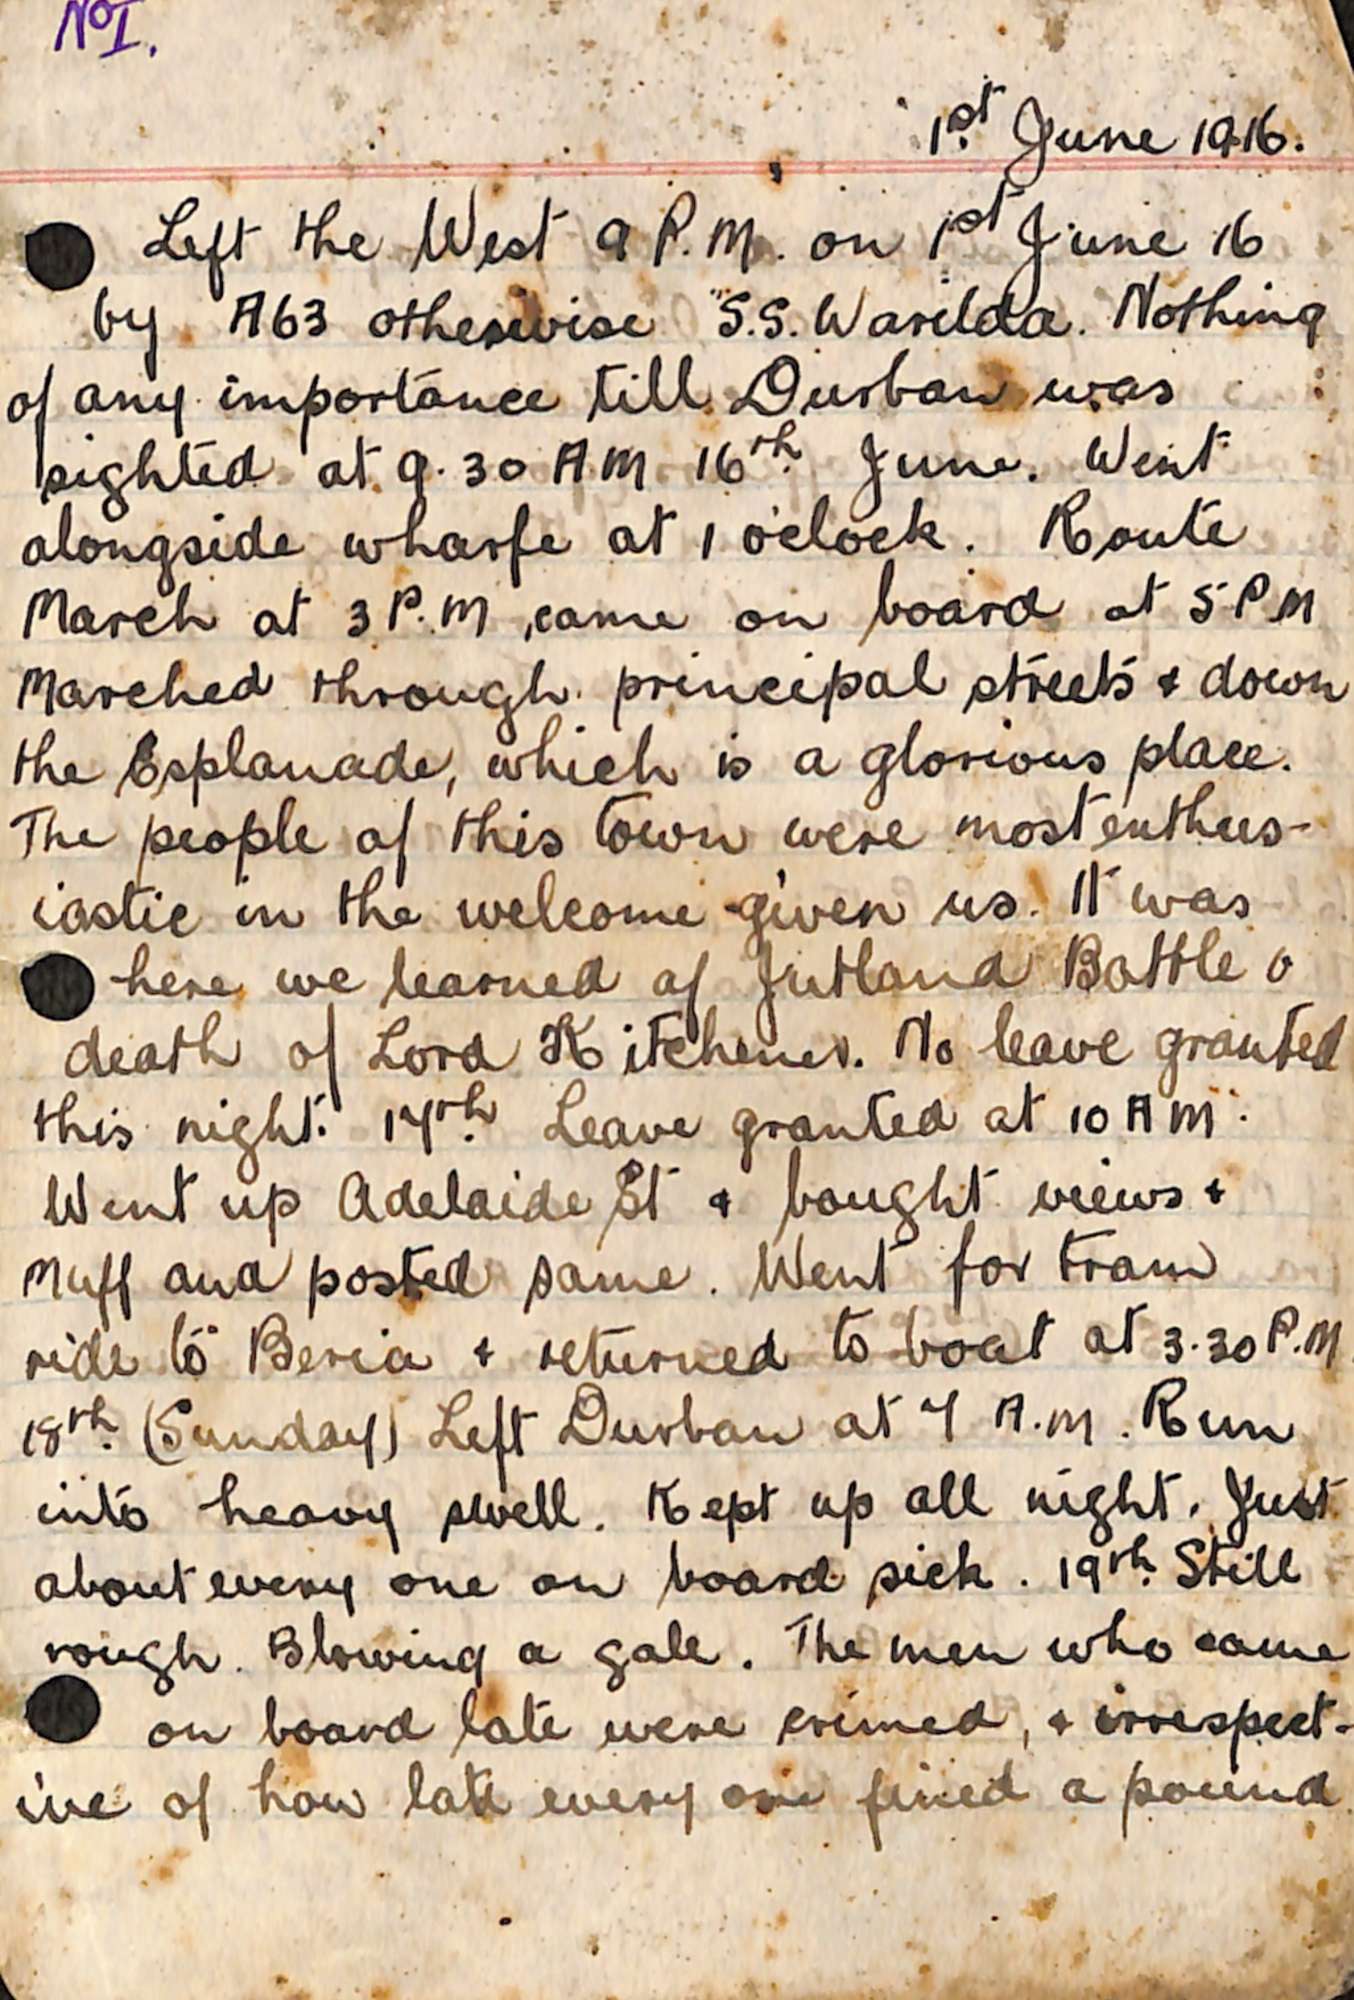 No I.
1st June 1916.
Left the West 9 P.M. on 1st June 16
by A63 otherwise "S.S. Warilda. Nothing
of any importance till Durban was
sighted at 9.30 AM 16th June. Went
alongside wharfe at 1 o'clock. Route
March at 3 P.M, came on board at 5 PM
Marched through principal streets & down
the Esplanade, which is a glorious place.
The people of this town were most enthus-
iastic in the welcome given us. It was
here we learned of Jutland Battle &
death of Lord Kitchener. No leave granted
this night. 17th Leave granted at 10 AM.
Went up Adelaide St & bought views &
Muff and posted same. Went for tram
ride to Beria & returned to boat at 3.30 P.M
18th (Sunday) Left Durban at 7 A.M. Run
into heavy swell. Kept up all night. Just
about every one on board sick. 19th Still
rough. Blowing a gale. The men who came
on board late were crimed, & irrespect-
ive of how late every one fined a pound